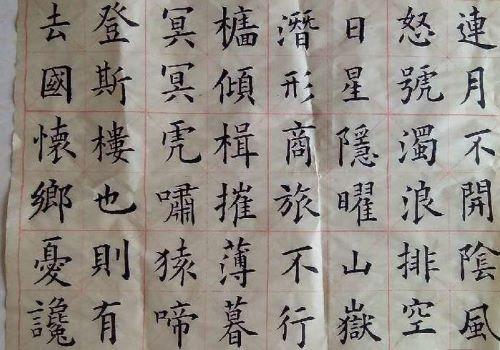 連月不開陰風
怒號濁浪排空
日星隱曜山嶽
潛形商旅不行
檣傾楫摧薄暮
冥冥虎嘯猿啼
登斯樓也則有
去國懷鄉憂讒